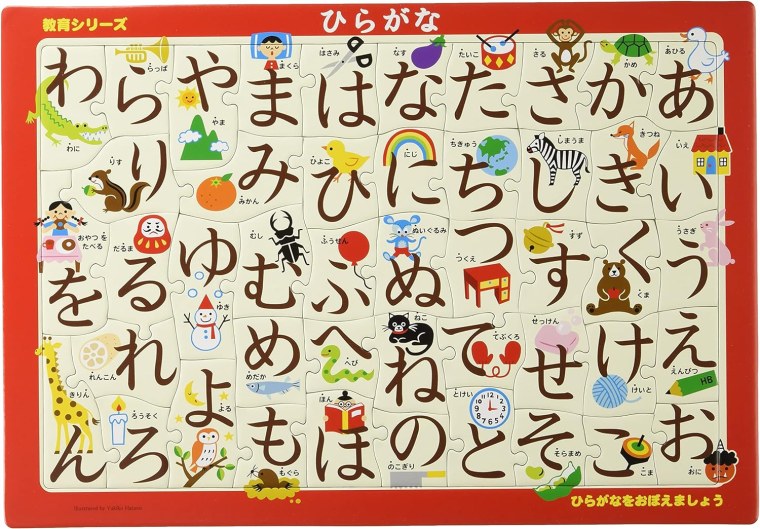 教育シリーズ
ひらがな
あ
あひる
い
いえ
う
うさぎ
え
えんぴつ
HB
お
おに
か
かめ
き
きつね
く
くま
け
けいと
こ
こま
さ
さる
し
しまうま
す
すず
せ
せっけん
そ
そらまめ
た
たいこ
ち
ちきゅう
つ
つくえ
て
てぶくろ
と
とけい
な
なす
に
にじ
ぬ
ぬいぐるみ
ね
ねこ
の
のこぎり
は
はさみ
ひ
ひよこ
ふ
ふうせん
へ
へび
ほ
ほん
ま
まくら
み
みかん
む
むし
め
めだか
も
もぐら
や
やま
ゆ
ゆき
よ
よる
ら
らっぱ
り
りす
る
だるま
れ
れんこん
ろ
ろうそく
わ
わに
を
おやつ を
たべる
ん
きりん
Illustrated by
ひらがなをおぼえましょう